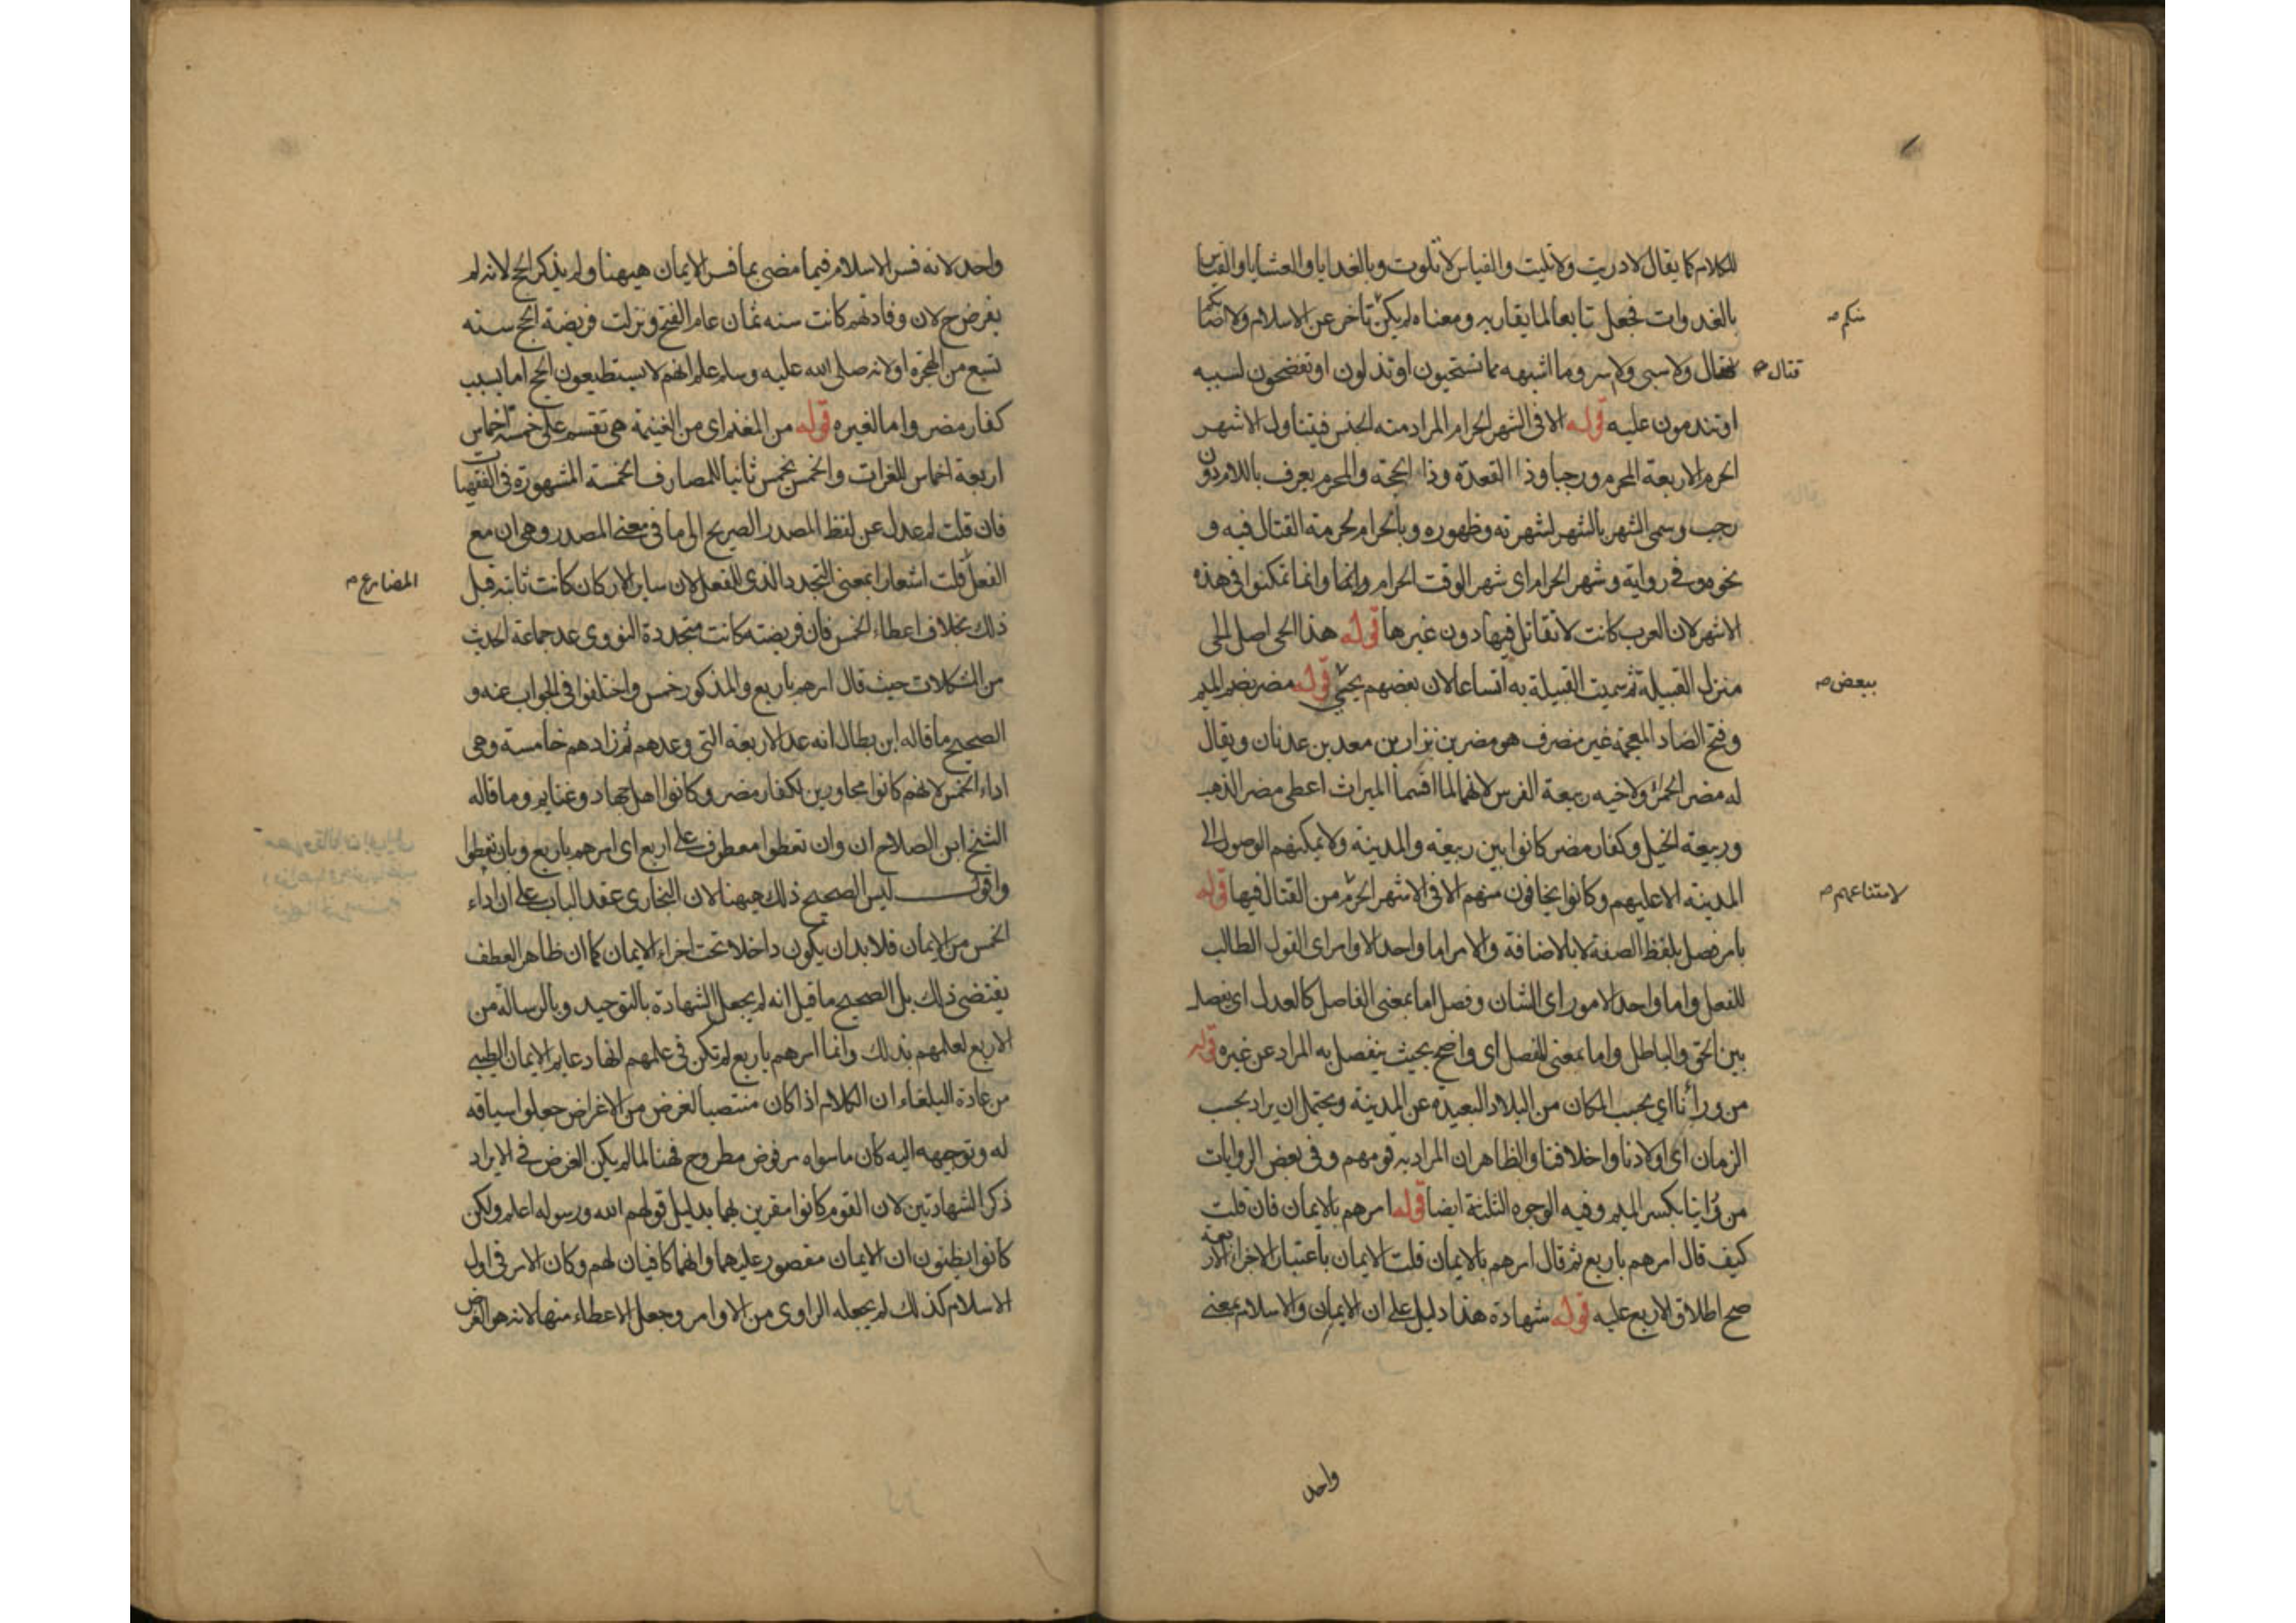 للكلام كما يقال لا دريت ولا تليت والقياس لا تلوت وبالغدايا والعشايا والقياس
بالغدوات فجعل تابعا لما يقاربه ومعناه لم يكن تأخر عن الاسلام ولا اصابكم
منكم صح
قتال ولا سبي ولا اسر وما اشبهه مما تستحيون او تذلون او تفضحون لسببه
قتال صح
او تندمون عليه قوله الا في الشهر الحرام المراد منه الجنس فيتناول الاشهر
الحرم الاربعة المحرم ورجبا وذا القعدة وذا الحجة والمحرم يعرف باللام دون
رجب وسمى الشهر بالشهر لشهرته وظهوره وبالحرام لحرمة القتال فيه و
نحوه وفي رواية وشهر الحرام اي شهر الوقت الحرام وانما وانما تمكنوا في هذه
الاشهر لان العرب كانت لا تقاتل فيها دون غيرها قوله هذا الحي اصل الحي
منزل القبيلة ثم سميت القبيلة به اتساعا لان بعضهم يحيى قوله مضر بضم الميم
ببعض صح
وفتح الضاد المعجمة غير منصرف هو مضر بن نزار بن معد بن عدنان ويقال
له مضر الحمرا ولاخيه ربيعة الفرس لانهما لما اقتسما الميراث اعطى مضر الذهب
وربيعة الخيل وكفار مضر كانوا بين ربيعة والمدينة ولا يمكنهم الوصول الى
المدينة الا عليهم وكانوا يخافون منهم الا في الاشهر الحرم من القتال فيها قوله
لامتناعهم صح
بامر فصل بلفظ الصفة لا بالاضافة والامر اما واحد الاوامر اي القول الطالب
للفعل واما واحد الامور اي الشان وفصل اما بمعنى الفاصل كالعدل اي يفصل
بين الحق والباطل واما بمعنى المفصل اي واضح بحيث ينفصل به المراد عن غيره قوله
من ورأنا اي بحسب المكان من البلاد البعيدة عن المدينة ويحتمل ان يراد بحسب
الزمان اي اولادنا واخلافنا والظاهر ان المراد به قومهم وفي بعض الروايات
من ورائنا بكسر الميم وفيه الوجوه الثلثة ايضا قوله امرهم بالايمان فان قلت
كيف قال امرهم باربع ثم قال امرهم بالايمان قلت الايمان باعتبار الاجزاء الاربعة
صح اطلاق الاربع عليه قوله شهادة هذا دليل على ان الايمان والاسلام بمعنى
واحد
واحد لانه فسر الاسلام فيما مضى بما فسر الايمان هيهنا ولم يذكر الحج لانه لم
يفرض ح لان وفادتهم كانت سنه ثمان عام الفتح ونزلت فريضة الحج سنه
تسع من الهجرة او لانه صلى الله عليه وسلم علم انهم لا يستطيعون الحج اما بسبب
كفار مضر واما لغيره قوله من المغنم اي من الغنيمة هي تقسم على خمسة اخماس
اربعة اخماس للغزات والخمس يخمس ثانيا للمصارف الخمسة المشهورة في الفقهيات
فان قلت لم عدل عن لفظ المصدر الصريح الى ما في معنى المصدر وهي ان مع
الفعل قلت اشعارا بمعنى التجدد الذي للفعل لان ساير الاركان كانت ثابتة قبل
المضارع صح
ذلك بخلاف اعطاء الخمس فان فريضته كانت متجددة النووي عد جماعة الحديث
من المشكلات حيث قال امرهم باربع والمذكور خمس واختلفوا في الجواب عنه و
الصحيح ما قاله ابن بطال انه عد الاربعة التي وعدهم ثم زادهم خامسة وهي
اداء الخمس لانهم كانوا مجاورين لكفار مضر وكانوا اهل جهاد وغنايم وما قاله
الشيخ ابن الصلاح ان وان تعطوا معطوف على اربع اي امرهم باربع وبان تعطوا
واقول ليس الصحيح ذلك هيهنا لان البخاري عقد الباب على ان اداء
الخمس من الايمان فلا بد ان يكون داخلا تحت اجزاء الايمان كما ان ظاهر العطف
يقتضي ذلك بل الصحيح ما قيل انه لم يجعل الشهادة بالتوحيد وبالرسالة من
الاربع لعلمهم بذلك وانما امرهم باربع لم تكن في علمهم انها دعايم الايمان الطيبي
من عادة البلغاء ان الكلام اذا كان منتصبا لغرض من الاغراض جعلوا سياقه
له وتوجهه اليه كان ما سواه مرفوض مطروح فهنا لما لم يكن الغرض في الايراد
ذكر الشهادتين لان القوم كانوا مقرين بهما بدليل قولهم الله ورسوله اعلم ولكن
كانوا يظنون ان الايمان مقصور عليهما وانهما كافيان لهم وكان الامر في اول
الاسلام كذلك لم يجعله الراوي من الاوامر وجعل الاعطاء منها لانه هو الغرض